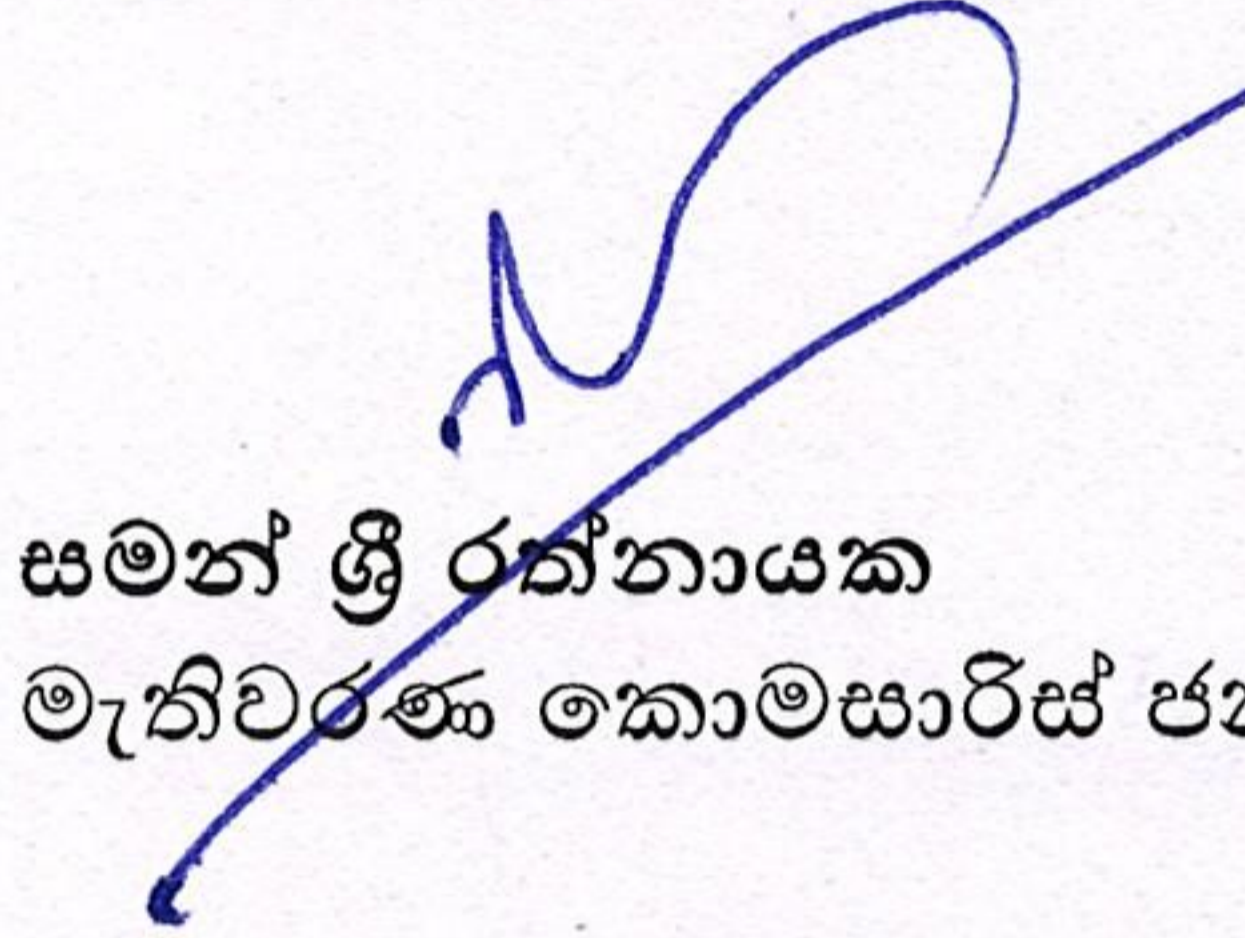 සමන් ශ්‍රී රත්නායක
මැතිවරණ කොමසාරිස්